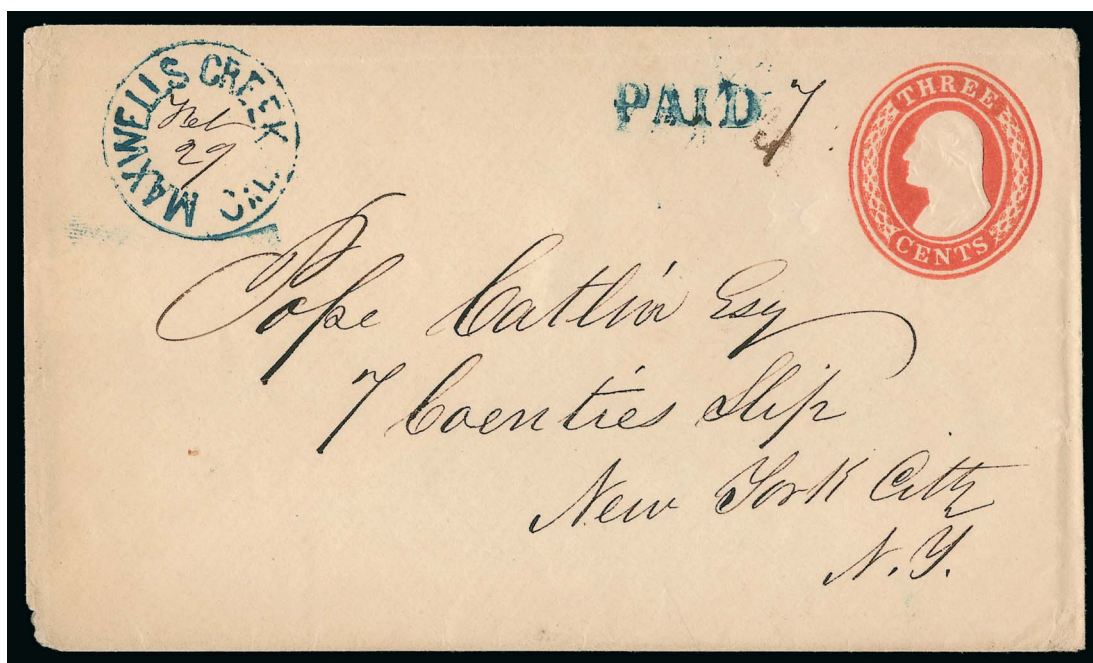 MAXWELLS CREEK CAL.
Feb
29
PAID 7
THREE
CENTS
Pope Catlin Esq
7 Coenties Slip
New York City
N.Y.